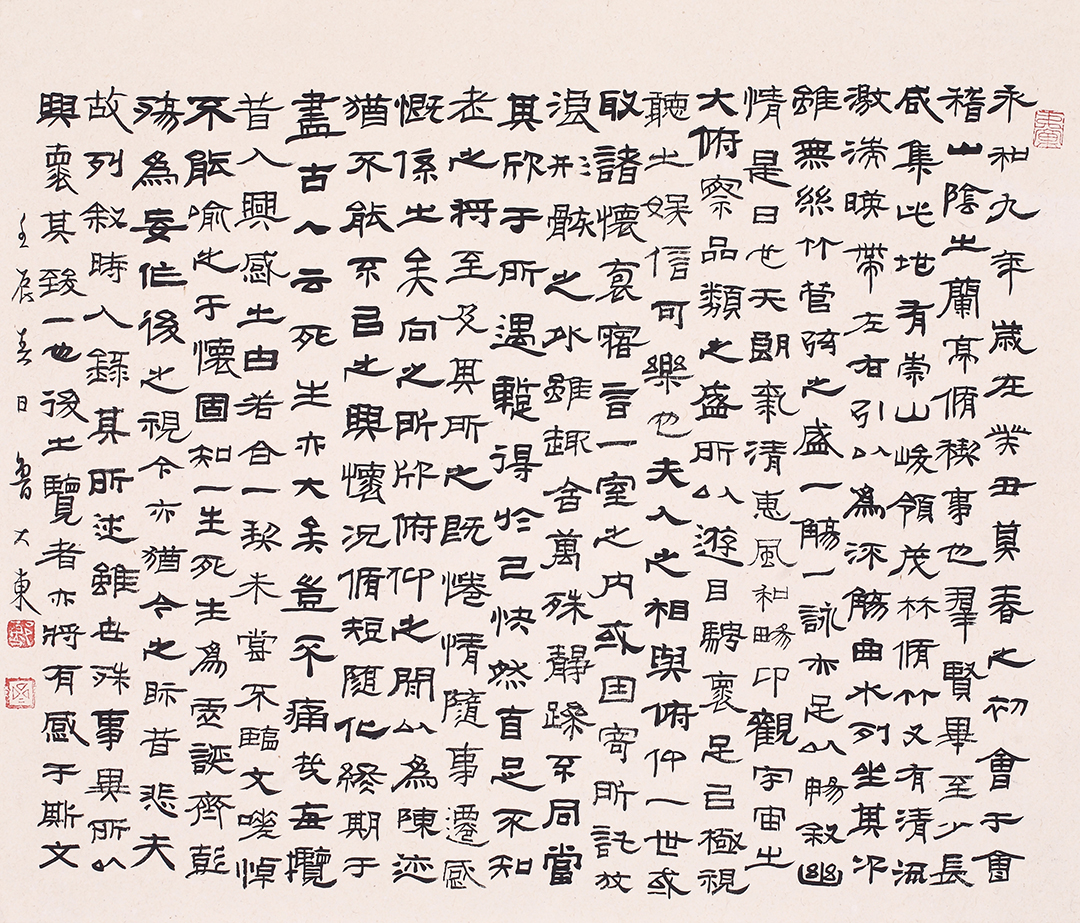 永和九年歲在癸丑莫春之初會于會
稽山陰之蘭亭脩禊事也羣賢畢至少長
咸集此地有崇山峻領茂林脩竹又有清流
激湍暎帶左右引以為流觴曲水列坐其次
雖無絲竹管弦之盛一觴一詠亦足以暢敘幽
情是日也天朗氣清惠風和暢仰觀宇宙之
大俯察品類之盛所以遊目騁褱足已極視
聽之娛信可樂也夫人之相與俯仰一世或
取諸懷袌寤言一室之內或因寄所託放
浪形骸之外雖趣舍萬殊靜躁不同當
其欣于所遇蹔得於己快然自足不知
老之將至及其所之既惓情隨事遷感
慨係之矣向之所欣俯仰之閒以為陳迹
猶不能不已之興懷況脩短隨化終期于
盡古人云死生亦大矣豈不痛哉每攬
昔人興感之由若合一契未嘗不臨文嗟悼
不能喻之于懷固知一生死生為虛誕齊彭
殤為妄作後之視今亦猶今之眎昔悲夫
故列敘時人錄其所述雖世殊事異所以
興褱其致一也後之覽者亦將有感于斯文
壬辰春日魯大東